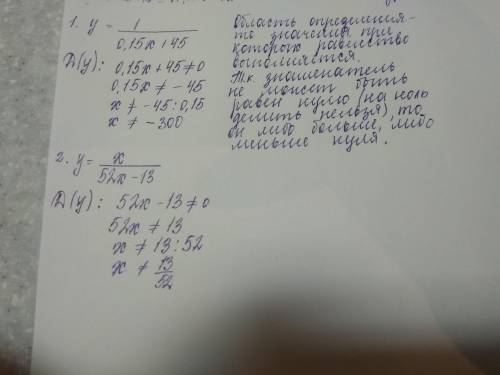 1. y = 1 / 0,15x+45
D(y): 0,15x+45≠0
0,15x ≠ -45
x ≠ -45:0,15
x ≠ -300
Область определения-
то значения, при
которых равенство
выполняется.
Т.к. знаменатель
не может быть
равен нулю (на ноль
делить нельзя), то
он либо больше, либо
меньше нуля.
2. y = x / 52x-13
D(y): 52x-13≠0
52x ≠ 13
x ≠ 13:52
x ≠ 13/52